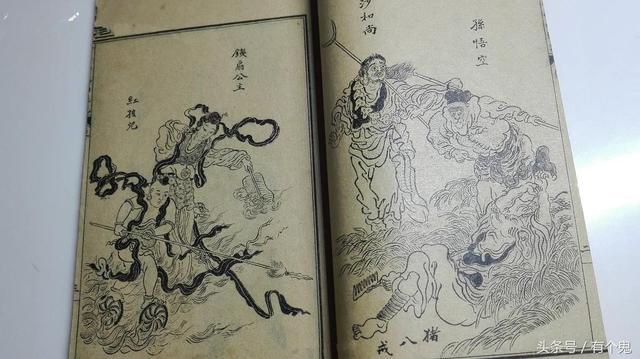 孫悟空
沙和尚
猪八戒
鐵扇公主
紅孩兒
头条号 / 有个鬼